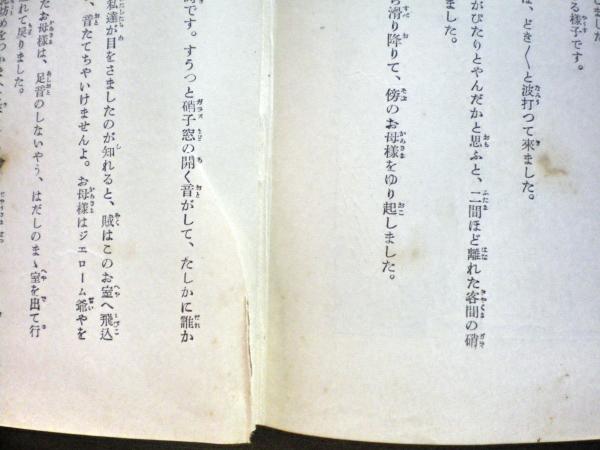 じました
る様子です。
は、どき〳〵と波打つて來ました。
がぴたりとやんだかと思ふと、二間ほど離れた客間の硝
ました。
ら滑り降りて、傍のお母樣をゆり起しました。
時です。すうつと硝子窓の開く音がして、たしかに誰か
私達が目をさましたのが知れると、賊はこのお室へ飛込
、音たてちやいけませんよ。お母樣はジエローム爺やを
たお母樣は、足音のしないやう、はだしのまゝ室を出て行
れて戻りました。